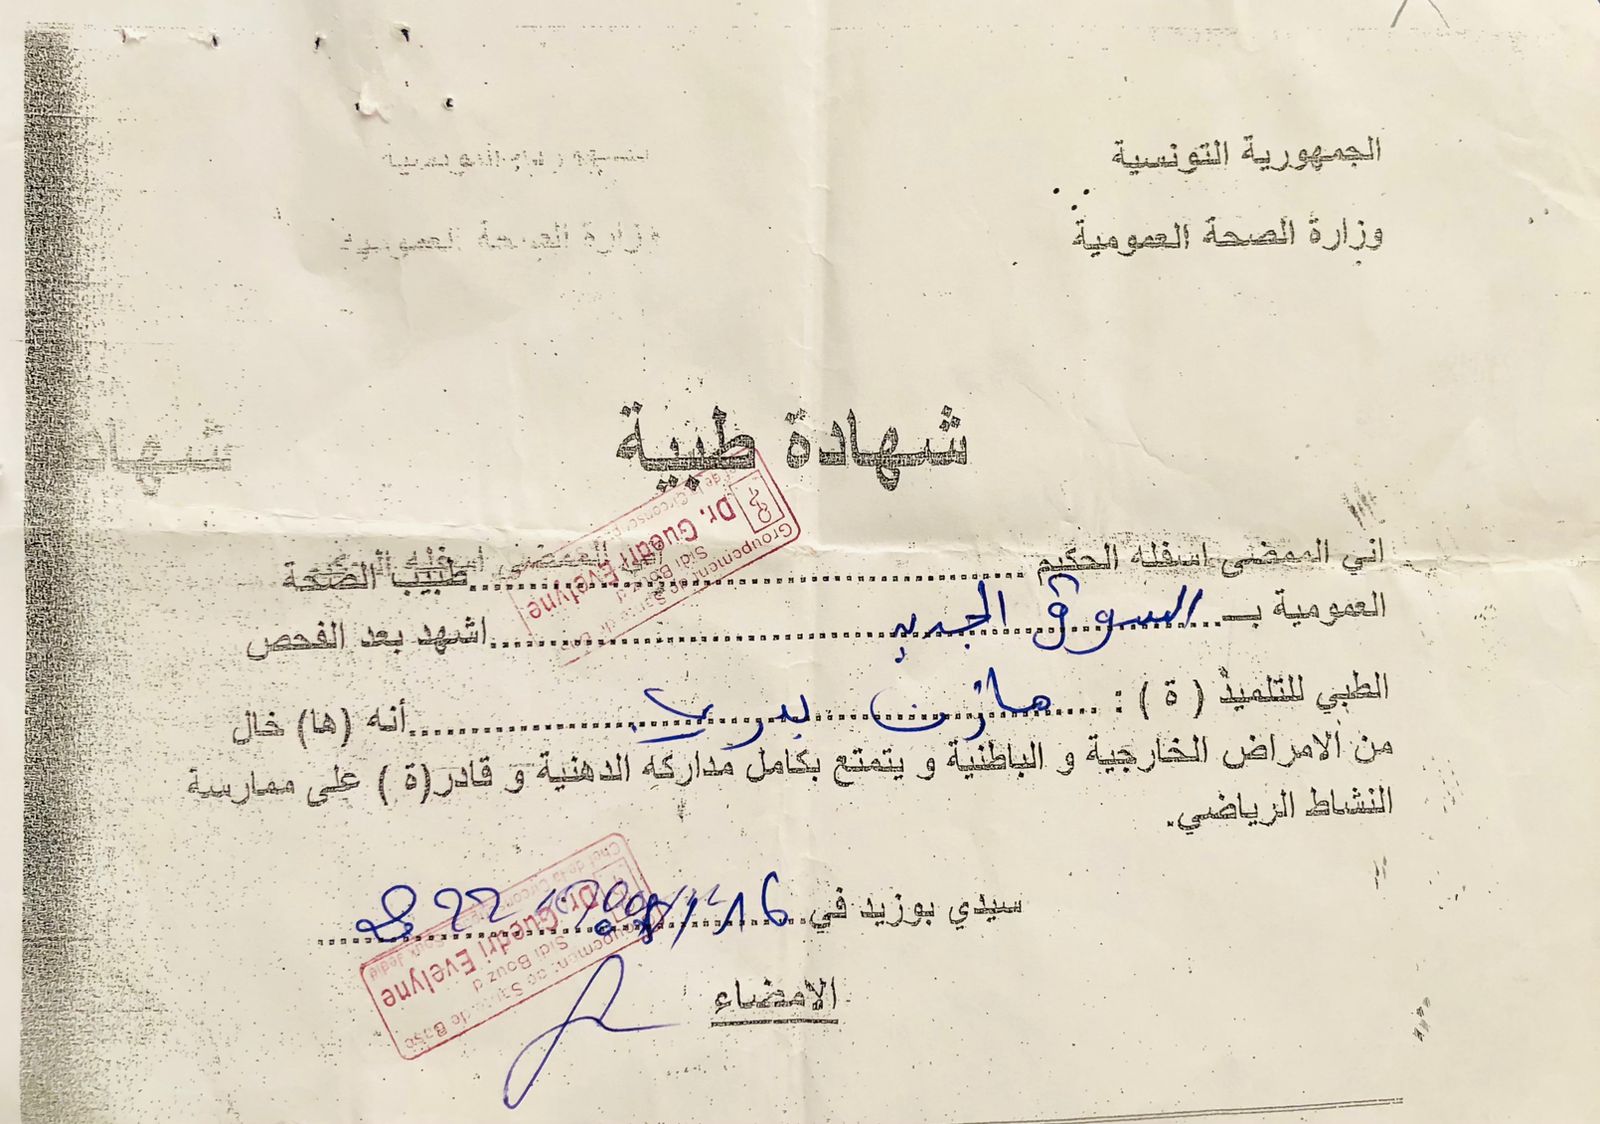 الجمهورية التونسية
وزارة الصحة العمومية
وزارة الصحة العمومية
شهادة طبية
شهاد
اني الممضى اسفله الحكيم ........ طبيب الصحة
Groupement de Santé de Base
Sidi Bouzid
Dr. Guedri Evelyne
العمومية بـ ... السوق الجديد ........ اشهد بعد الفحص
الطبي للتلميذ ( ة ) : ... مازن ........ أنه (ها) خال
من الامراض الخارجية و الباطنية و يتمتع بكامل مداركه الدهنية و قادر(ة ) على ممارسة
النشاط الرياضي.
سيدي بوزيد في 16
Groupement de Santé de Base
Sidi Bouzid
Dr. Guedri Evelyne
Chef de la Circonscription
الامضاء